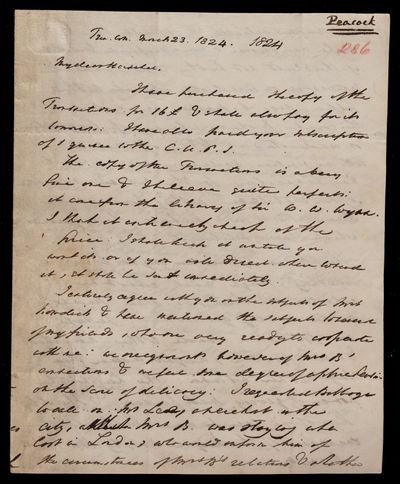 Peacock
286
Trin. Coll. March 23. 1824. 1824
My dear Herschel,
I have purchased the copy of the
Transactions for 16£ & shall also pay for its
I have also paid your subscription
of 1 guinea to the C. U. P. S.
The copy of the Transactions is a very
fine one & I believe quite perfect:
it came from the library of Sir W. W. Wynn.
I think it extremely cheap at the
price: I shall keep it until you
want it or if you will direct where to send
it, it shall be sent immediately.
I entirely agree with you on the subject of Mrs
& have mentioned the subject to several
of my friends, who are very ready to cooperate
with me: we are ignorant however of Mrs B's
connections & we feel some degree of apprehension
on the score of delicacy: I requested Babbage
to call on Mr a chemist in the
city, with Mrs B. was staying when
last in London & who would inform him of
the circumstances of Mrs B's relations &